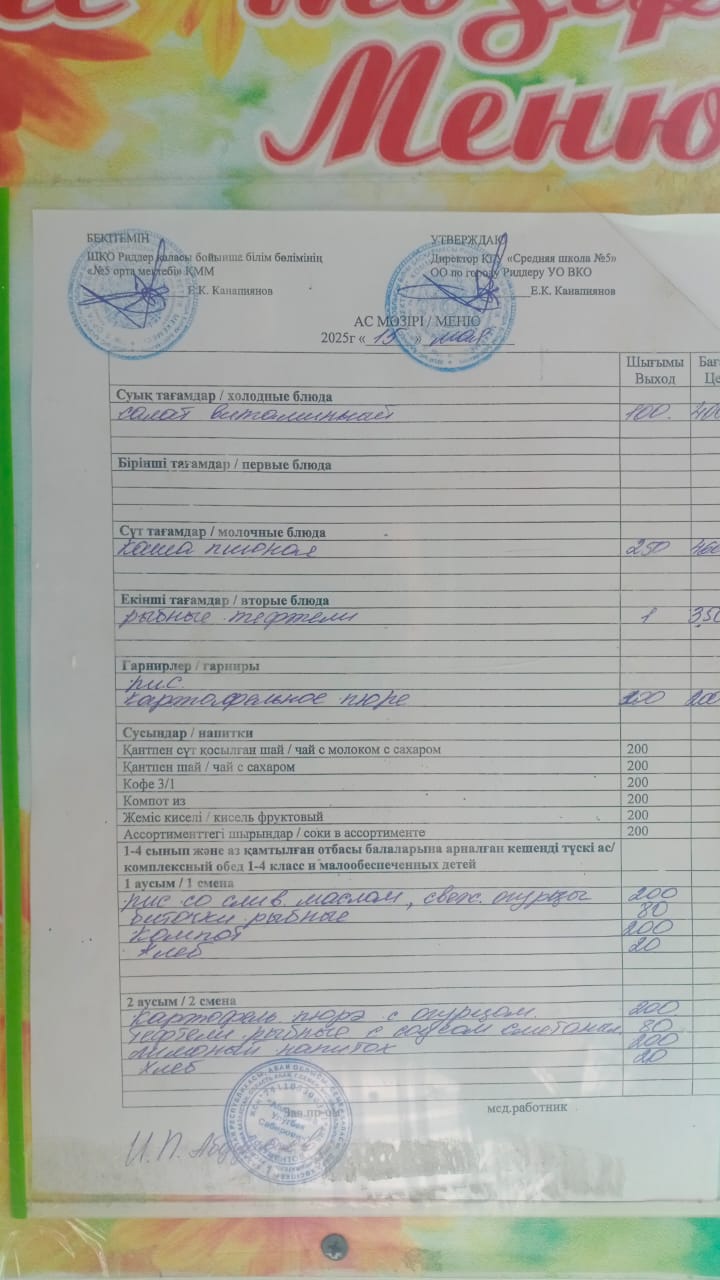 Меню
БЕКІТЕМІН
ШҚО Риддер қаласы бойынша білім бөлімінің
«№5 орта мектебі» КММ
Е.К. Канапиянов
УТВЕРЖДАЮ
Директор КГУ «Средняя школа №5»
ОО по городу Риддеру УО ВКО
Е.К. Канапиянов
АС МӘЗІРІ / МЕНЮ
2025г « 15 » мая
Шығымы
Выход
Суық тағамдар / холодные блюда
салат витаминный 100
Бірінші тағамдар / первые блюда
Сүт тағамдар / молочные блюда
каша пшоная 250
Екінші тағамдар / вторые блюда
рыбные тефтели 1
Гарнирлер / гарниры
рис
картофельное пюре
Сусындар / напитки
Қантпен сүт қосылған шай / чай с молоком с сахаром 200
Қантпен шай / чай с сахаром 200
Кофе 3/1 200
Компот из 200
Жеміс киселі / кисель фруктовый 200
Ассортименттегі шырындар / соки в ассортименте 200
1-4 сынып және аз қамтылған отбасы балаларына арналған кешенді түскі ас/
комплексный обед 1-4 класс и малообеспеченных детей
1 аусым / 1 смена
рис со слив. маслом, свеж. огурцы 200
биточки рыбные 80
компот 200
хлеб 20
2 аусым / 2 смена
картофель пюрэ с огурцом. 200
тефтели рыбные с соусом сметанн. 80
лимоный напиток 200
хлеб 20
мед.работник
И.П.